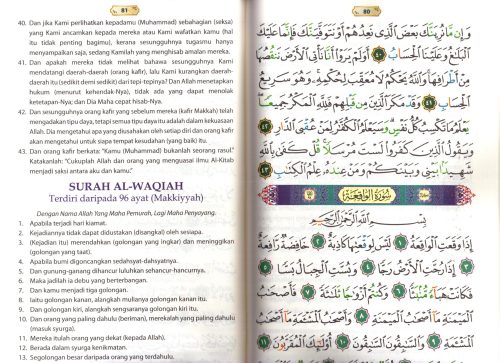 81
40. Dan jika Kami perlihatkan kepadamu (Muhammad) sebahagian (seksa) yang Kami ancamkan kepada mereka atau Kami wafatkan kamu (hal itu tidak penting bagimu), kerana sesungguhnya tugasmu hanya menyampaikan saja, sedang Kamilah yang menghisab amalan mereka.
41. Dan apakah mereka tidak melihat bahawa sesungguhnya Kami mendatangi daerah-daerah (orang kafir), lalu Kami kurangkan daerah-daerah itu (sedikit demi sedikit) dari tepi-tepinya? Dan Allah menetapkan hukum (menurut kehendak-Nya), tidak ada yang dapat menolak ketetapan-Nya; dan Dia Maha cepat hisab-Nya.
42. Dan sesungguhnya orang kafir yang sebelum mereka (kafir Makkah) telah mengadakan tipu daya, tetapi semua tipu daya itu adalah dalam kekuasaan Allah. Dia mengetahui apa yang diusahakan oleh setiap diri dan orang kafir akan mengetahui untuk siapa tempat kesudahan (yang baik) itu.
43. Dan orang kafir berkata: "Kamu (Muhammad) bukanlah seorang rasul." Katakanlah: "Cukuplah Allah dan orang yang menguasai ilmu Al-Kitab menjadi saksi antara aku dan kamu."
SURAH AL-WAQIAH
Terdiri daripada 96 ayat (Makkiyyah)
Dengan Nama Allah Yang Maha Pemurah, Lagi Maha Penyayang.
1. Apabila terjadi hari kiamat.
2. Kejadiannya tidak dapat didustakan (disangkal) oleh sesiapa.
3. (Kejadian itu) merendahkan (golongan yang ingkar) dan meninggikan (golongan yang taat).
4. Apabila bumi digoncangkan sedahsyat-dahsyatnya.
5. Dan gunung-ganang dihancur luluhkan sehancur-hancurnya.
6. Maka jadilah ia debu yang berterbangan.
7. Dan kamu menjadi tiga golongan.
8. Iaitu golongan kanan, alangkah mulianya golongan kanan itu.
9. Dan golongan kiri, alangkah sengsaranya golongan kiri itu.
10. Dan orang yang paling dahulu (beriman), merekalah yang paling dahulu (masuk syurga).
11. Mereka itulah orang yang dekat (kepada Allah).
12. Berada dalam syurga kenikmatan.
13. Segolongan besar daripada orang yang terdahulu.
80
وَإِن مَّا نُرِيَنَّكَ بَعْضَ الَّذِي نَعِدُهُمْ أَوْ نَتَوَفَّيَنَّكَ فَإِنَّمَا عَلَيْكَ
الْبَلَٰغُ وَعَلَيْنَا الْحِسَابُ ٤٠ أَوَلَمْ يَرَوْا أَنَّا نَأْتِي الْأَرْضَ نَنقُصُهَا
مِنْ أَطْرَافِهَا وَاللَّهُ يَحْكُمُ لَا مُعَقِّبَ لِحُكْمِهِ وَهُوَ سَرِيعُ
الْحِسَابِ ٤١ وَقَدْ مَكَرَ الَّذِينَ مِن قَبْلِهِمْ فَلِلَّهِ الْمَكْرُ جَمِيعًا
يَعْلَمُ مَا تَكْسِبُ كُلُّ نَفْسٍ وَسَيَعْلَمُ الْكُفَّٰرُ لِمَنْ عُقْبَى الدَّارِ ٤٢
وَيَقُولُ الَّذِينَ كَفَرُوا لَسْتَ مُرْسَلًا قُلْ كَفَىٰ بِاللَّهِ
شَهِيدًا بَيْنِي وَبَيْنَكُمْ وَمَنْ عِندَهُ عِلْمُ الْكِتَٰبِ ٤٣
سُورَةُ الْوَاقِعَةِ
بِسْمِ اللَّهِ الرَّحْمَٰنِ الرَّحِيمِ
إِذَا وَقَعَتِ الْوَاقِعَةُ ١ لَيْسَ لِوَقْعَتِهَا كَاذِبَةٌ ٢ خَافِضَةٌ رَّافِعَةٌ
٣ إِذَا رُجَّتِ الْأَرْضُ رَجًّا ٤ وَبُسَّتِ الْجِبَالُ بَسًّا ٥
فَكَانَتْ هَبَاءً مُّنبَثًّا ٦ وَكُنتُمْ أَزْوَٰجًا ثَلَٰثَةً ٧ فَأَصْحَٰبُ
الْمَيْمَنَةِ مَا أَصْحَٰبُ الْمَيْمَنَةِ ٨ وَأَصْحَٰبُ الْمَشْـَٔمَةِ مَا أَصْحَٰبُ
الْمَشْـَٔمَةِ ٩ وَالسَّٰبِقُونَ السَّٰبِقُونَ ١٠ أُولَٰئِكَ الْمُقَرَّبُونَ ١١